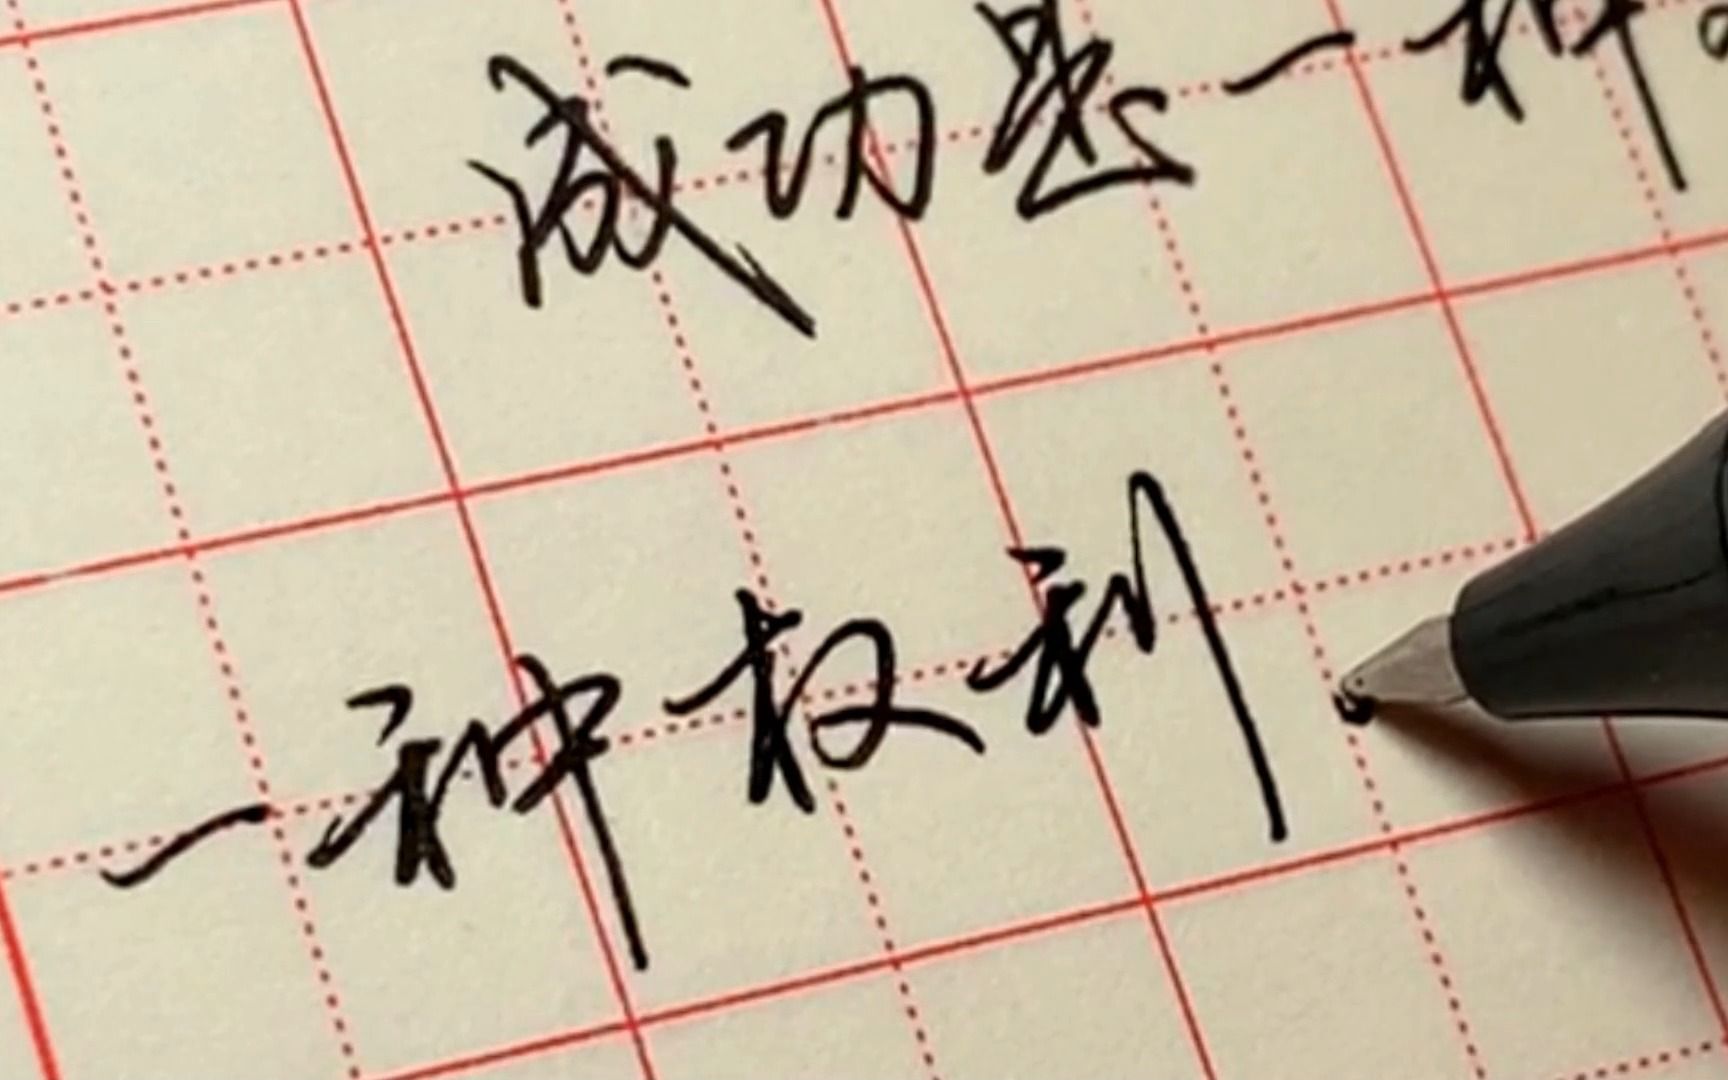 成功是一种
一种权利